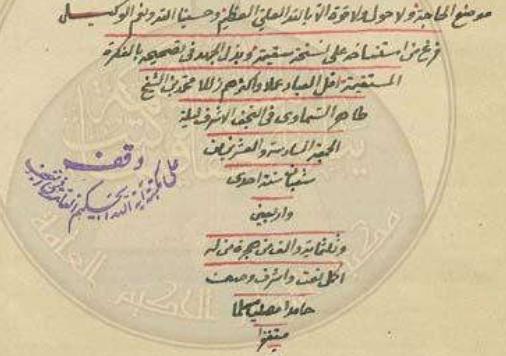 موضع الحاجة ولا حول ولا قوة الا بالله العلي العظيم وحسبنا الله ونعم الوكيل
فرغ من استنساخه على نسخة سقيمة وبذل الجهد في تصحيحه بالفكرة
المستقيمة اقل العباد عملا واكثرهم زللا محمد بن الشيخ
طاهر السماوي في النجف الاشرف ليلة
الجمعة السادسة والعشرين من
شعبان سنة احدى
واربعين
وثلثمائة والف من هجرة من له
اكمل نعت واشرف وصف
حامدا مصليا مسلما
وقف
على مكتبة آية الله الحكيم العامة في النجف